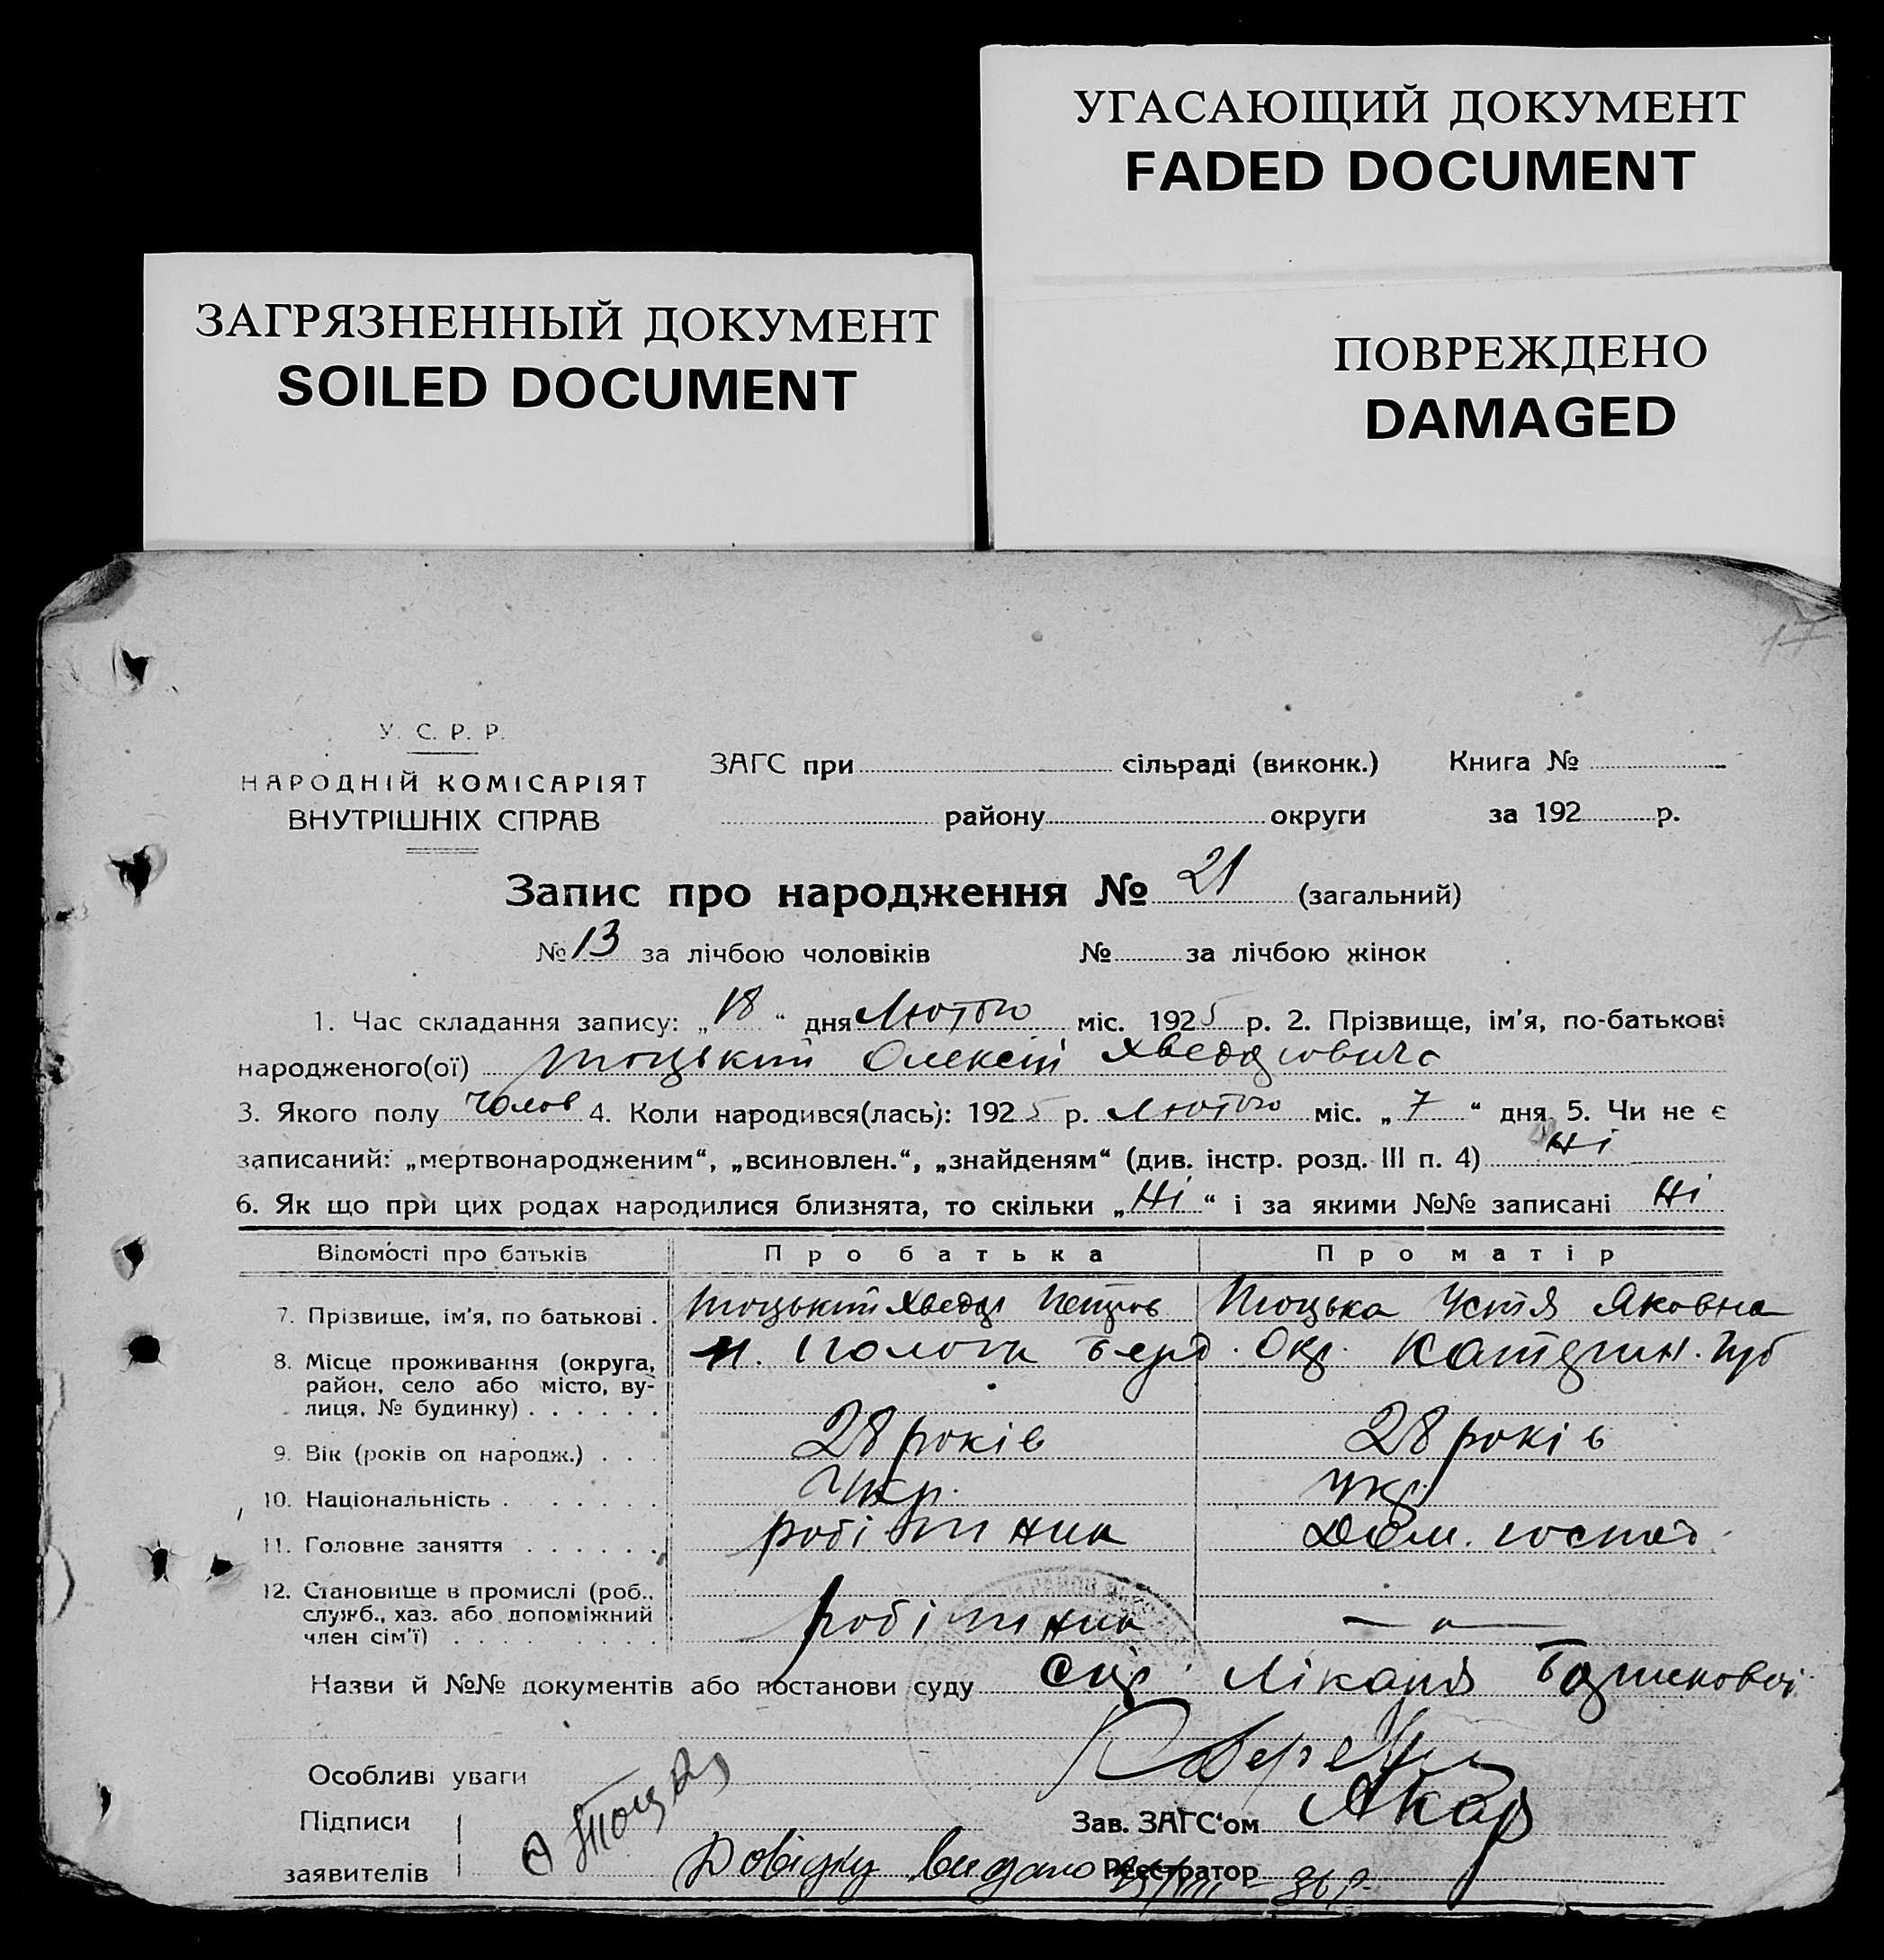 УГАСАЮЩИЙ ДОКУМЕНТ
FADED DOCUMENT
ЗАГРЯЗНЕННЫЙ ДОКУМЕНТ
SOILED DOCUMENT
ПОВРЕЖДЕНО
DAMAGED
17
У. С. Р. Р.
НАРОДНІЙ КОМІСАРІЯТ
ВНУТРІШНІХ СПРАВ
ЗАГС при сільраді (виконк.) Книга №
району округи за 192 р.
Запис про народження № 21 (загальний)
№ 13 за лічбою чоловіків № за лічбою жінок
1. Час складання запису: „18“ дня Лютого міс. 1925 р. 2. Прізвище, ім'я, по-батькові
народженого(ої) Тоцький Олексій Хведорович
3. Якого полу Чолов 4. Коли народився(лась): 1925 р. Лютого міс. „7“ дня 5. Чи не є
записаний: „мертвонародженим“, „всиновлен.“, „знайденям“ (див. інстр. розд. III п. 4) Ні
6. Як що при цих родах народилися близнята, то скільки „Ні“ і за якими №№ записані Ні
Відомості про батьків Про батька Про матір
7. Прізвище, ім'я, по батькові . Тоцький Хведір Петров Тоцька Устя Яковна
8. Місце проживання (округа, район, село або місто, вулиця, № будинку) . . . . . . Окр. Катерин. Губ
9. Вік (років од народж.) . . . 28 років 28 років
10. Національність . . . . . . . Укр. Укр.
11. Головне заняття . . . . . . робітник Дом. госпо
12. Становище в промислі (роб., служб., хаз. або допоміжний член сім'ї) . . . . . . . . . робітник — „ —
Назви й №№ документів або постанови суду Лікаря
Особливі уваги
Підписи
заявителів
Зав. ЗАГС'ом
Реєстратор
Довідку видано 36 р.